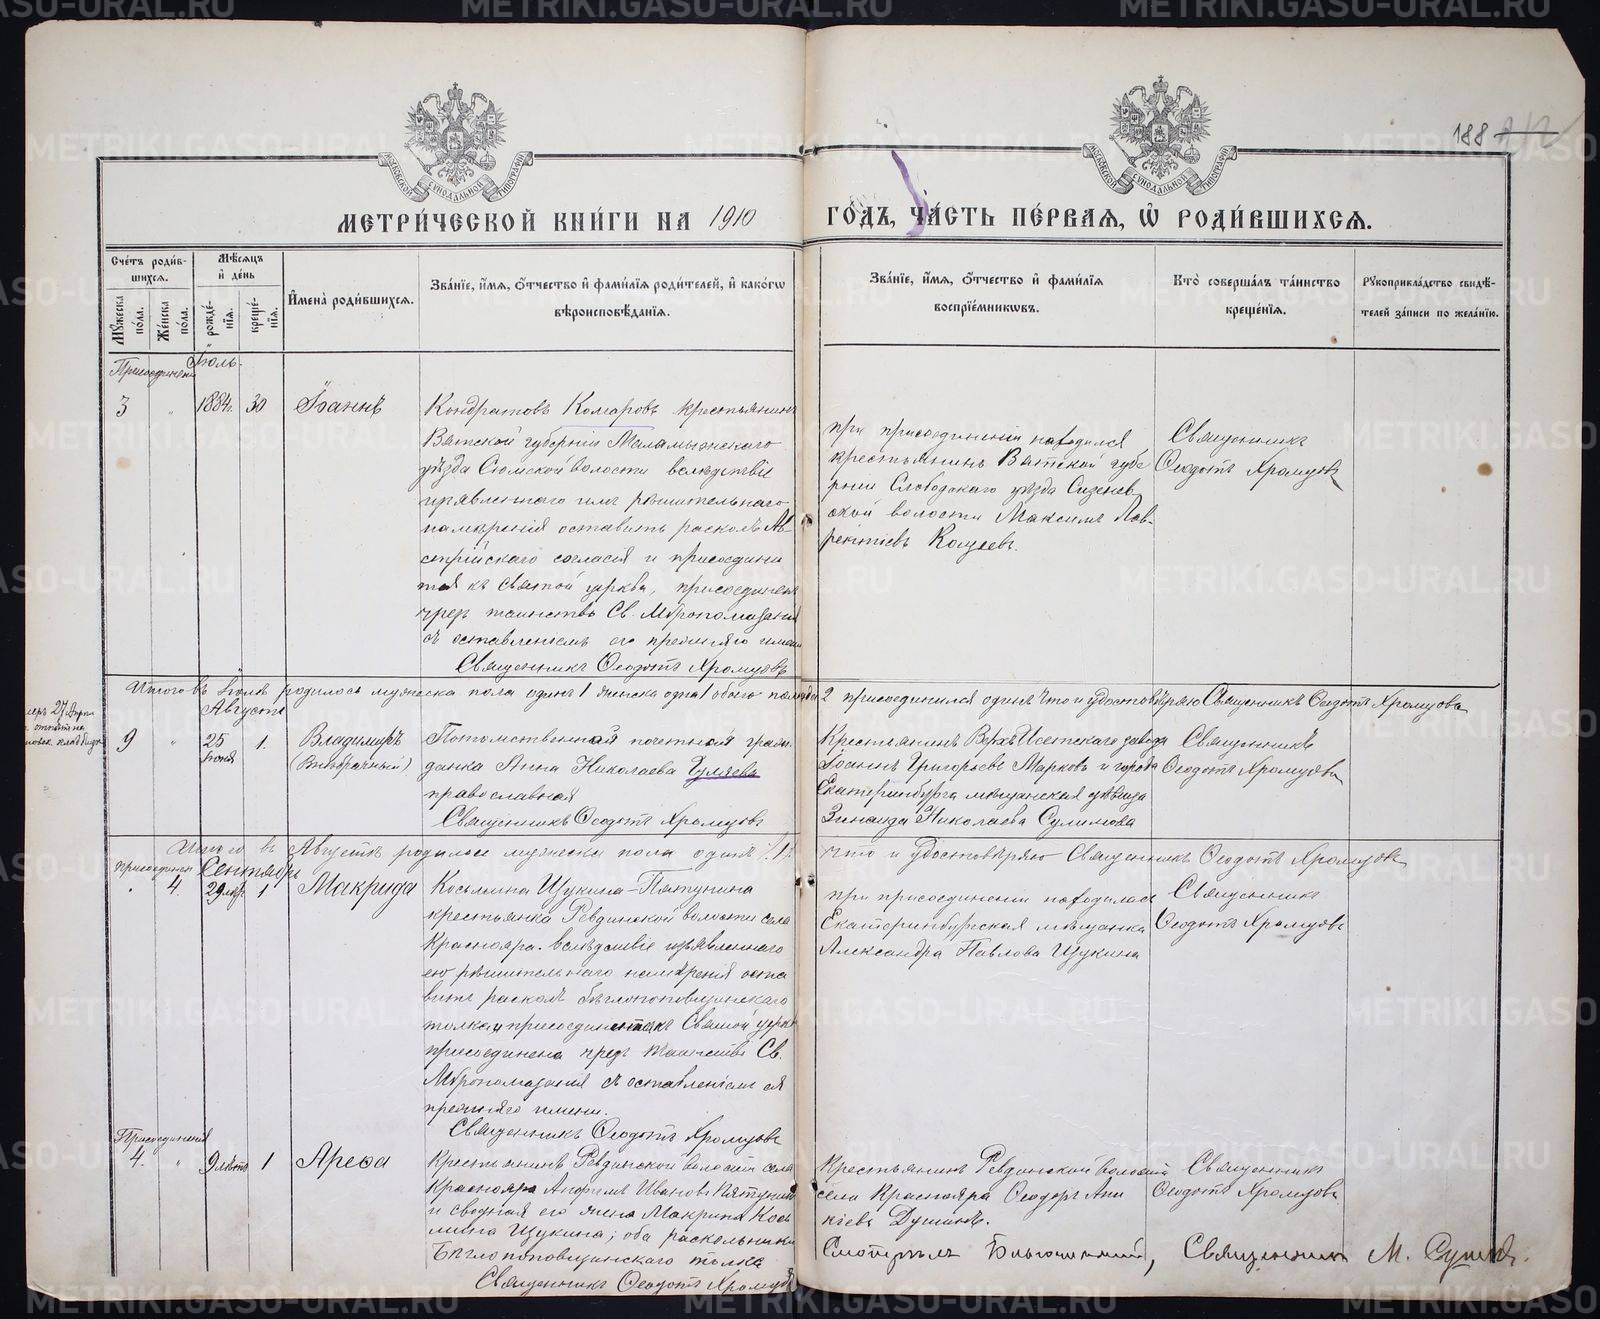 METRIKI.GASO-URAL.RU
188
МОСКОВСКОЙ СѴНОДАЛЬНОЙ ТИПОГРАФІИ
МОСКОВСКОЙ СѴНОДАЛЬНОЙ ТИПОГРАФІИ
МЕТРИ́ЧЕСКОЙ КНИ́ГИ НА 1910 ГО́ДЪ, ЧА́СТЬ ПЕ́РВАЯ, Ѡ҆ РОДИ́ВШИХСЯ.
Сче́тъ роди́в-
шихся.
Мꙋ́жеска по́ла.
Же́нска по́ла.
Мѣ́сяцъ и҆ де́нь
рожде́-нїя.
креще́-нїя.
И҆мена̀ роди́вшихся.
Зва́нїе, и҆́мя, ѻ҆́тчество и҆ фами́лїя роди́телей, и҆ како́гѡ
вѣроисповѣ́данїя.
Зва́нїе, и҆́мя, ѻ҆́тчество и҆ фами́лїя
воспрїе́мникѡвъ.
Кто̀ соверша́лъ та́инство
креще́нїя.
Рꙋкоприкла́дство свидѣ́-
телей за́писи по жела́нїю.
Іюль.
3 " 1884г. 30 Іоаннъ
Кондратовъ Комаровъ крестьянинъ
Вятской губерніи Малмыжскаго
уѣзда Сюмской волости вслѣдствіе
изъявленнаго имъ рѣшительнаго
намѣренія оставить расколъ Ав-
стрійскаго согласія и присоедини
тся къ святой церкви, присоединенъ
чрезъ таинство Св. Мѵропомазанія
съ оставленіемъ его прежняго имени
Священникъ Ѳеодотъ Хромцовъ
при присоединеніи находился
крестьянинъ Вятской губе
рніи Слободскаго уѣзда Сезенев
ской волости Максимъ Лав-
рентіевъ
Священникъ
Ѳеодотъ Хромцовъ
Итого въ Іюлѣ родилось мужеска пола одинъ 1 женска одна 1 обоего пола два 2 присоединился одинъ что и удостовѣряю Священникъ Ѳеодотъ Хромцовъ
Августъ
9 " 25 Іюля 1. Владиміръ
(Внѣбрачный)
Потомственная почетная граж-
данка Анна Николаева Гуляева
православная
Священникъ Ѳеодотъ Хромцовъ
Крестьянинъ Верхъ Исетскаго завода
Іоаннъ Григорьевъ Марковъ и города
Екатеринбурга мѣщанская дѣвица
Зинаида Николаева Сулимова
Священникъ
Ѳеодотъ Хромцовъ
Итого въ Августѣ родилось мужеска пола одинъ /1/ что и удостовѣряю Священникъ Ѳеодотъ Хромцовъ
Сентябрь
" 4. 1 Макрида
Косьмина Щукина-Пятунина
крестьянка Ревдинской волости села
Краснояра. вслѣдствіе изъявленнаго
ею рѣшительнаго намѣренія оста
вить расколъ Бѣглопоповщинскаго
толка и присоединиться къ Святой церкви
присоединена чрезъ таинство Св.
Мѵропомазанія съ оставленіемъ ея
прежняго имени.
Священникъ Ѳеодотъ Хромцовъ
при присоединеніи находилась
Екатеринбургская мѣщанка
Александра Павлова Щукина
Священникъ
Ѳеодотъ Хромцовъ
4. " 9 лѣтъ 1 Арефа
Крестьянинъ Ревдинской волости села
Краснояра Иванъ Пятунинъ
и сводная его жена Макрида Кось
мина Щукина; оба раскольники
Бѣглопоповщинскаго толка
Священникъ Ѳеодотъ Хромцовъ
Крестьянинъ Ревдинской волости
села Краснояра Ѳеодоръ
Священникъ
Ѳеодотъ Хромцовъ
Смотрѣлъ Благочинный, Священникъ М.